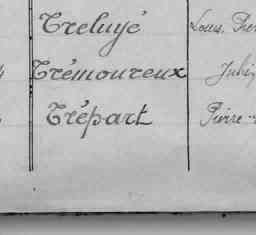 Treluyé Louis,
Trémoureux
Trépart Pierre